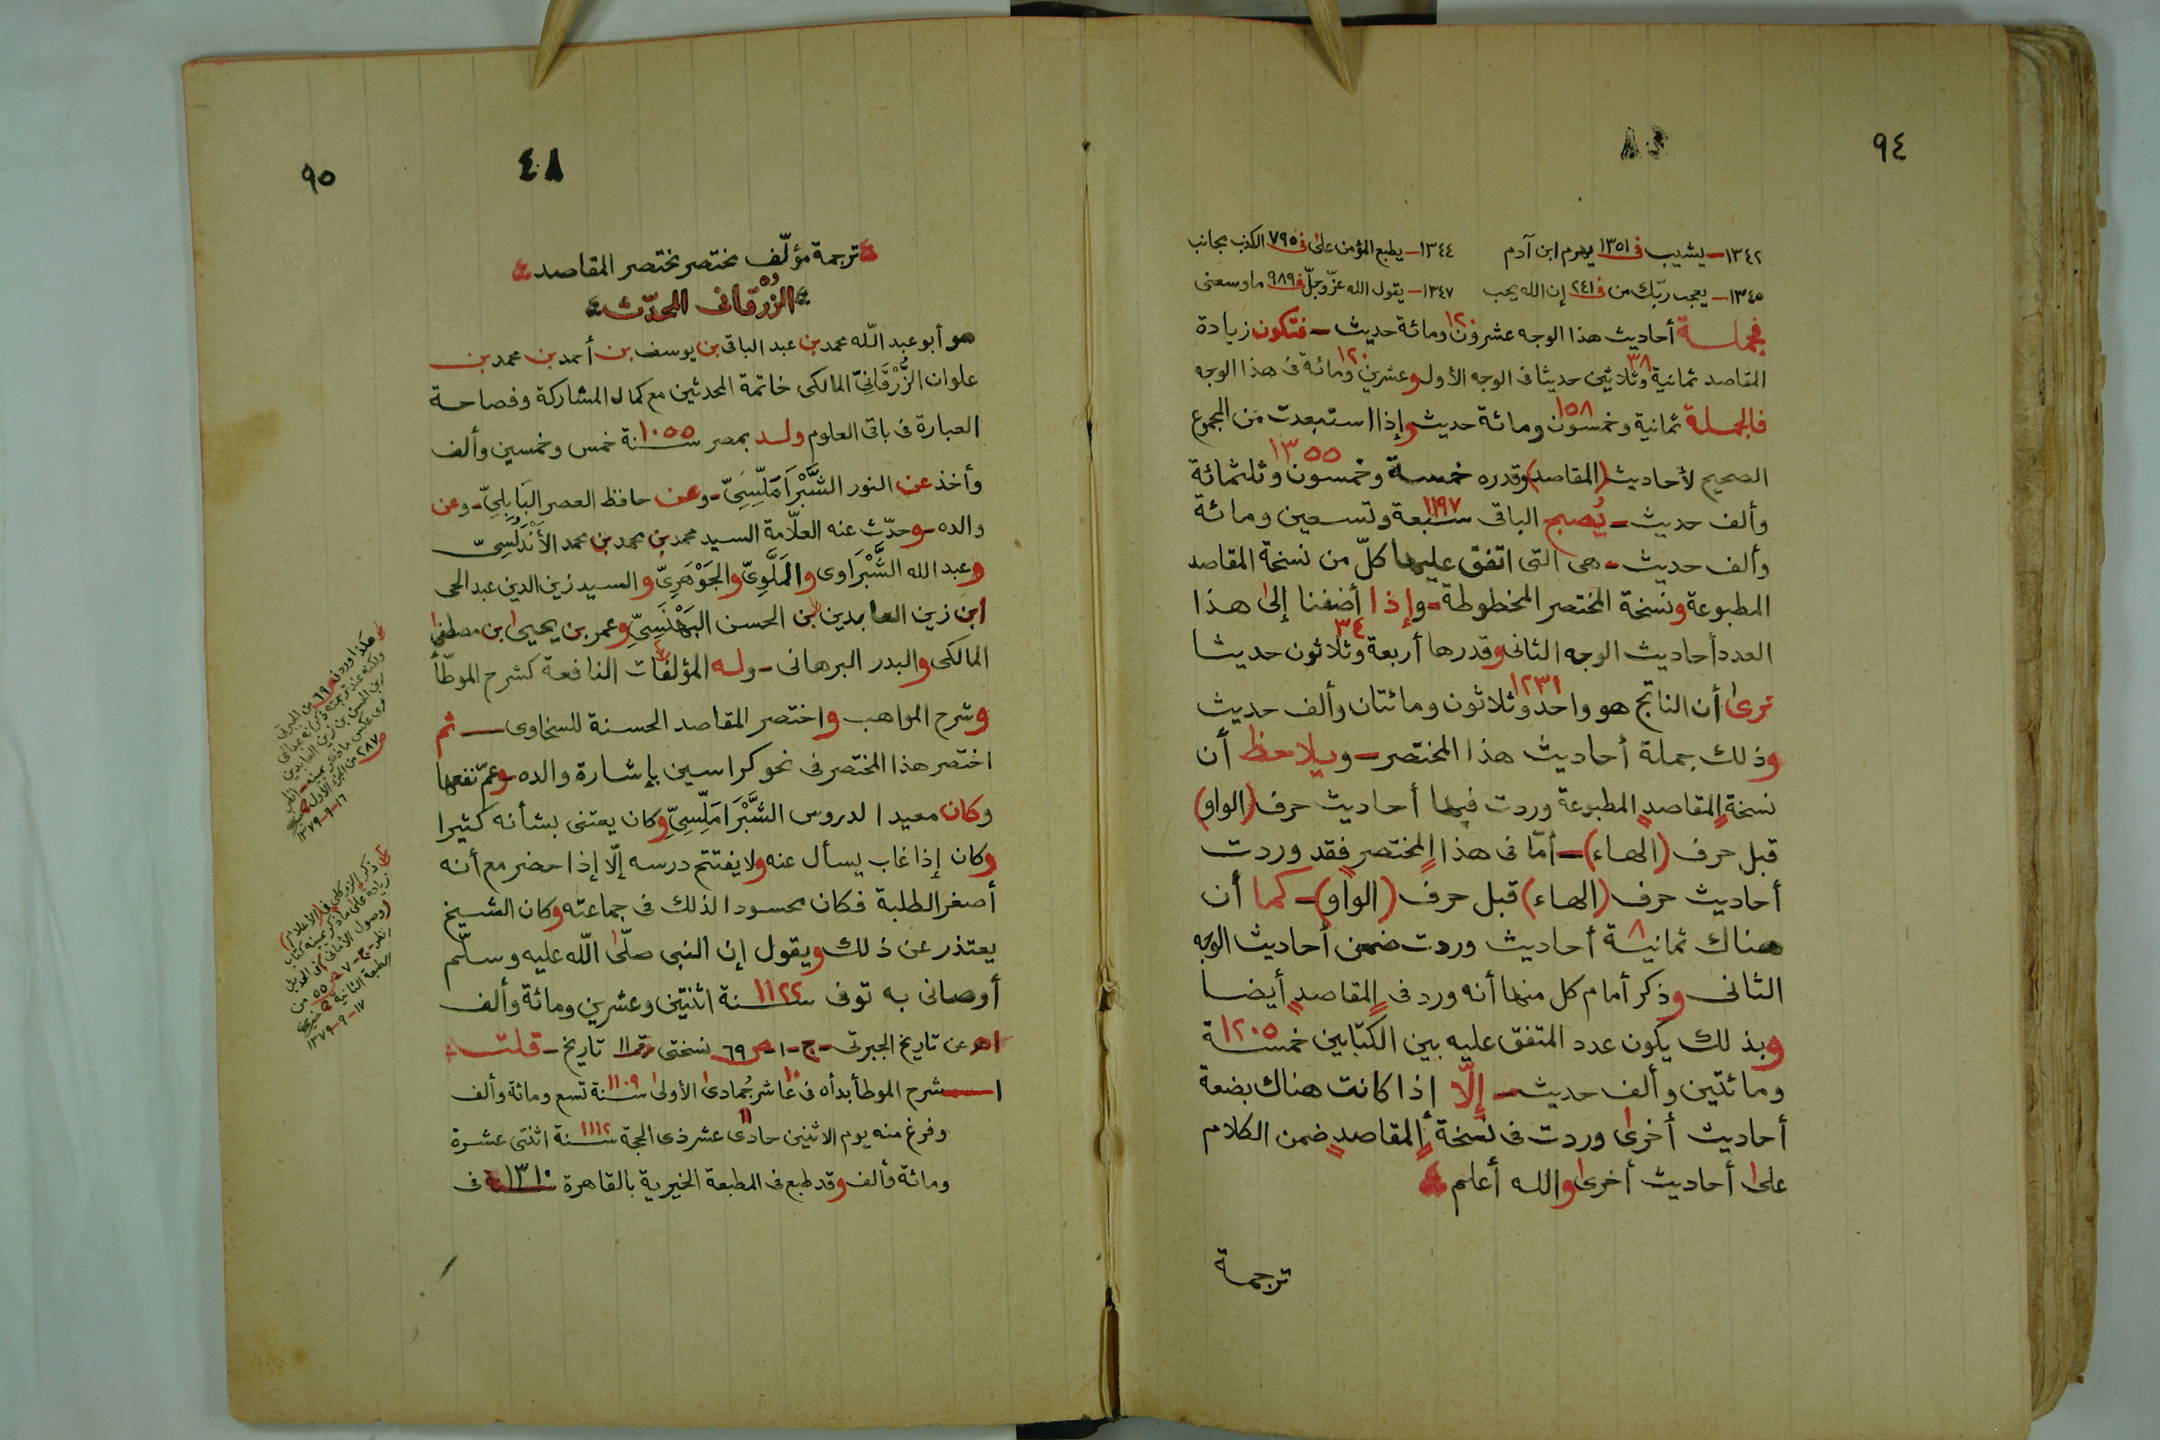 ٩٤
١٣٤٢ــ يشيب في ١٣٥١ يهرم ابن آدم ١٣٤٤ــ يطبع المؤمن على في ٧٩٥ الكذب يجانب
١٣٤٥ــ يعجب ربّك من في ٢٤١ إن الله يحب ١٣٤٧ــ يقول الله عزّ وجلّ في ٩٨٩ ما وسعنى
فجملة أحاديث هذا الوجه عشرون ١٢٠ ومائة حديث ــ فتكون زيادة
المقاصد ثمانية وثلاثين ٣٨ حديثا في الوجه الأول وعشرين ١٢٠ ومائة في هذا الوجه
فالجملة ثمانية وخمسون ١٥٨ ومائة حديث وإذا استبعدت من المجموع
الصحيح لأحاديث (المقاصد) وقدره خمسة وخمسون ١٣٥٥ وثلثمائة
وألف حديث ــ يُصبح الباقى سبعة ١١٩٧ وتسعين ومائة
وألف حديث ــ هى التى اتفق عليها كلّ من نسخة المقاصد
المطبوعة ونسخة المختصر المخطوطة ــ وإذا أضفنا إلى هذا
العدد أحاديث الوجه الثانى وقدرها أربعة ٣٤ وثلاثون حديثا
نرى أن الناتج هو واحد ١٢٣١ وثلاثون ومائتان وألف حديث
وذلك جملة أحاديث هذا المختصر ــ ويلاحظ أن
نسخة المقاصد المطبوعة وردت فيها أحاديث حرف (الواو)
قبل حرف (الهاء) ــ أمّا فى هذا المختصر فقد وردت
أحاديث حرف (الهاء) قبل حرف (الواو) ــ كما أن
هناك ثمانية ٨ أحاديث وردت ضمن أحاديث الوجه
الثانى وذكر أمام كل منها أنه ورد فى المقاصد أيضا
وبذلك يكون عدد المتفق عليه بين الكتابين خمسة ١٢٠٥
ومائتين وألف حديث ــ إلّا إذا كانت هناك بضعة
أحاديث أخرى وردت فى نسخة المقاصد ضمن الكلام
على أحاديث أخرى والله أعلم
ترجمة
٩٥
٤٨
ترجمة مؤلّف مختصر مختصر المقاصد
الزُّرْقانى المحدّث
هو أبو عبد الله محمد بن عبد الباقى بن يوسف بن أحمد بن محمد بن
علوان الزُّرْقَانِىّ المالكى خاتمة المحدثين مع كمال المشاركة وفصاحة
العبارة فى باقى العلوم ولد بمصر سنة ١٠٥٥ خمس وخمسين وألف
وأخذ عن النور الشَّبْرَامَلِّسِىّ ــ وعن حافظ العصر البَابِلِىّ ــ وعن
والده ــ وحدّث عنه العلّامة السيد محمد بن محمد بن محمد الأَنْدَلُسِىّ
وعبد الله الشَّبْرَاوى والمَلَّوِىّ والجَوْهَرِىّ والسيد زين الدين عبد الحى
ابن زين العابدين بن الحسن البَهْنَسِىّ وعمر بن يحيى ابن مصطفى
المالكى والبدر البرهانى ــ وله المؤلفات النافعة كشرح الموطّأ
وشرح المواهب واختصر المقاصد الحسنة للسخاوى ــ ثم
اختصر هذا المختصر فى نحو كراسين بإشارة والده ــ وعمّ نفعها
وكان معيدا لدروس الشَّبْرَامَلِّسِىّ وكان يعتنى بشأنه كثيرا
وكان إذا غاب يسأل عنه ولا يفتتح درسه إلّا إذا حضر مع أنه
أصغر الطلبة فكان محسودا لذلك فى جماعته وكان الشيخ
يعتذر عن ذلك ويقول إن النبى صلّى اللّه عليه وسلّم
أوصانى به توفى سنة ١١٢٢ اثنتين وعشرين ومائة وألف
اهـ عن تاريخ الجبرتى ــ ج ــ ١ ــ ص ٦٩ نسختى رقم ١١ تاريخ ــ قلت
١ ــ شرح الموطأ بدأه فى عاشر ١٠ جُمادى الأولى سنة ١١٠٩ تسع ومائة وألف
وفرغ منه يوم الاثنين حادى ١١ عشر ذى الحجة سنة ١١١٢ اثنتى عشرة
ومائة وألف وقد طبع فى المطبعة الخيرية بالقاهرة سنة ١٣١٠ فى
هكذا أوردته ص ٦٩ من الجبرتى
ولكنه عند ترجمته ذكر أنه عبد الحى
بن الحسن بن زين العابدين
ص ٢٨٧ من الجزء الأول
١٦-٩-١٣٧٩
ذكر الزركلى فى (الأعلام)
زيادة على ما ذكر بمينه كتاب
(وصول الأمانى) فى الحديث
انظر ــ ج ــ ٧ ــ ص ٥٥ من
الطبعة الثانية
١٧-٩-١٣٧٩